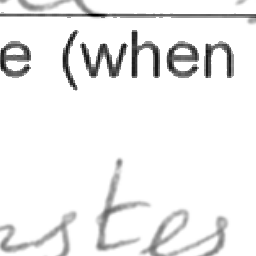 e (when
stes